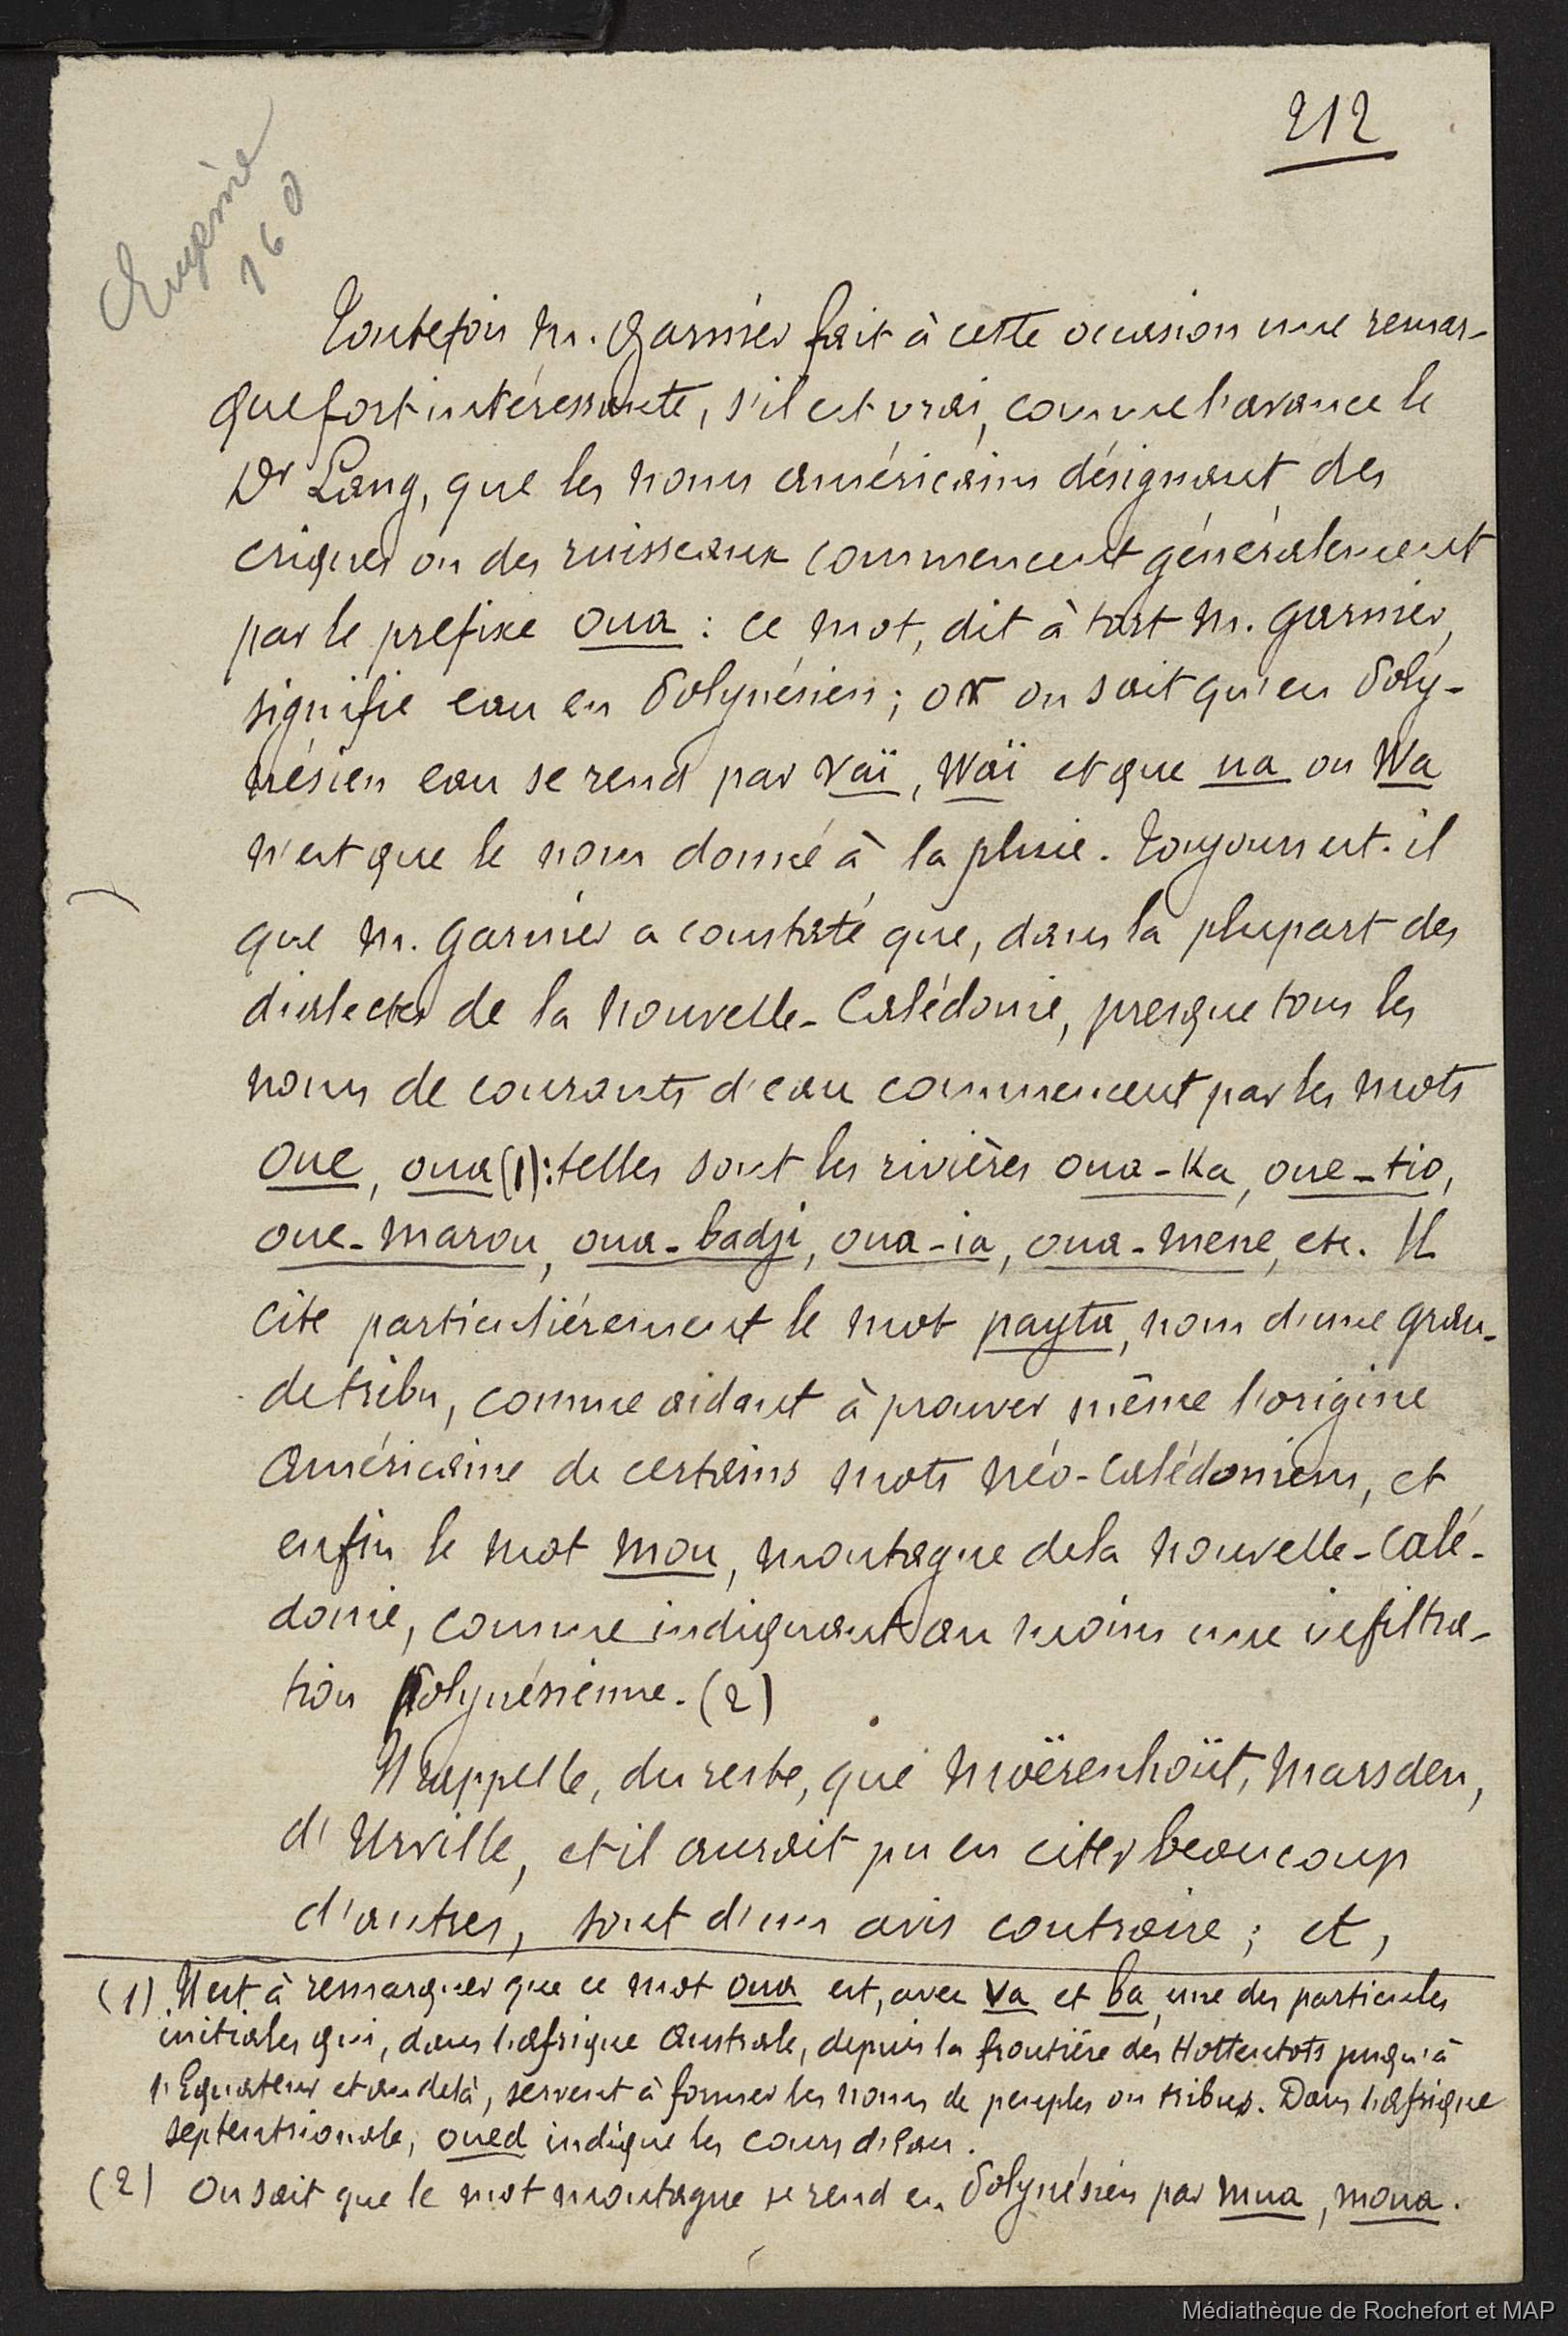 212
Eugénie
160
Toutefois M. Garnier fait à cette occasion une remar-
que fort intéressante, s'il est vrai, comme l'avance le
Dr Lang, que les noms américains désignant des
criques ou des ruisseaux commencent généralement
par le prefixe oua : ce mot, dit à tort M. Garnier,
signifie eau en Polynésien ; or on sait qu'en Poly-
nésien eau se rend par vaï, Waï et que ua ou Wa
n'est que le nom donné à la pluie. Toujours est-il
que M. Garnier a constaté que, dans la plupart des
dialectes de la Nouvelle-Calédonie, presque tous les
noms de courants d'eau commencent par les mots
oue, oua (1): telles sont les rivières oua-Ka, oue-tio,
oue-marou, oua-badji, oua-ia, oua-mene, etc. Il
cite particulièrement le mot payta, nom d'une gran-
de tribu, comme aidant à prouver même l'origine
Américaine de certains mots néo-Calédoniens, et
enfin le mot mou, montagne de la Nouvelle-Calé-
donie, comme indiquant au moins une infiltra-
tion Polynésienne. (2)
Il rappelle, du reste, que Moërenhoüt, Marsden,
d'Urville, et il aurait pu en citer beaucoup
d'autres, sont d'un avis contraire ; et,
(1) Il est à remarquer que ce mot oua est, avec va et ba, une des particules
initiales qui, dans l'afrique Australe, depuis la frontière des Hottentots jusqu'à
l'Equateur et au delà, servent à former les noms de peuples ou tribus. Dans l'afrique
septentrionale, oued indique les cours d'eau.
(2) On sait que le mot montagne se rend en Polynésien par mua, moua.
Médiathèque de Rochefort et MAP